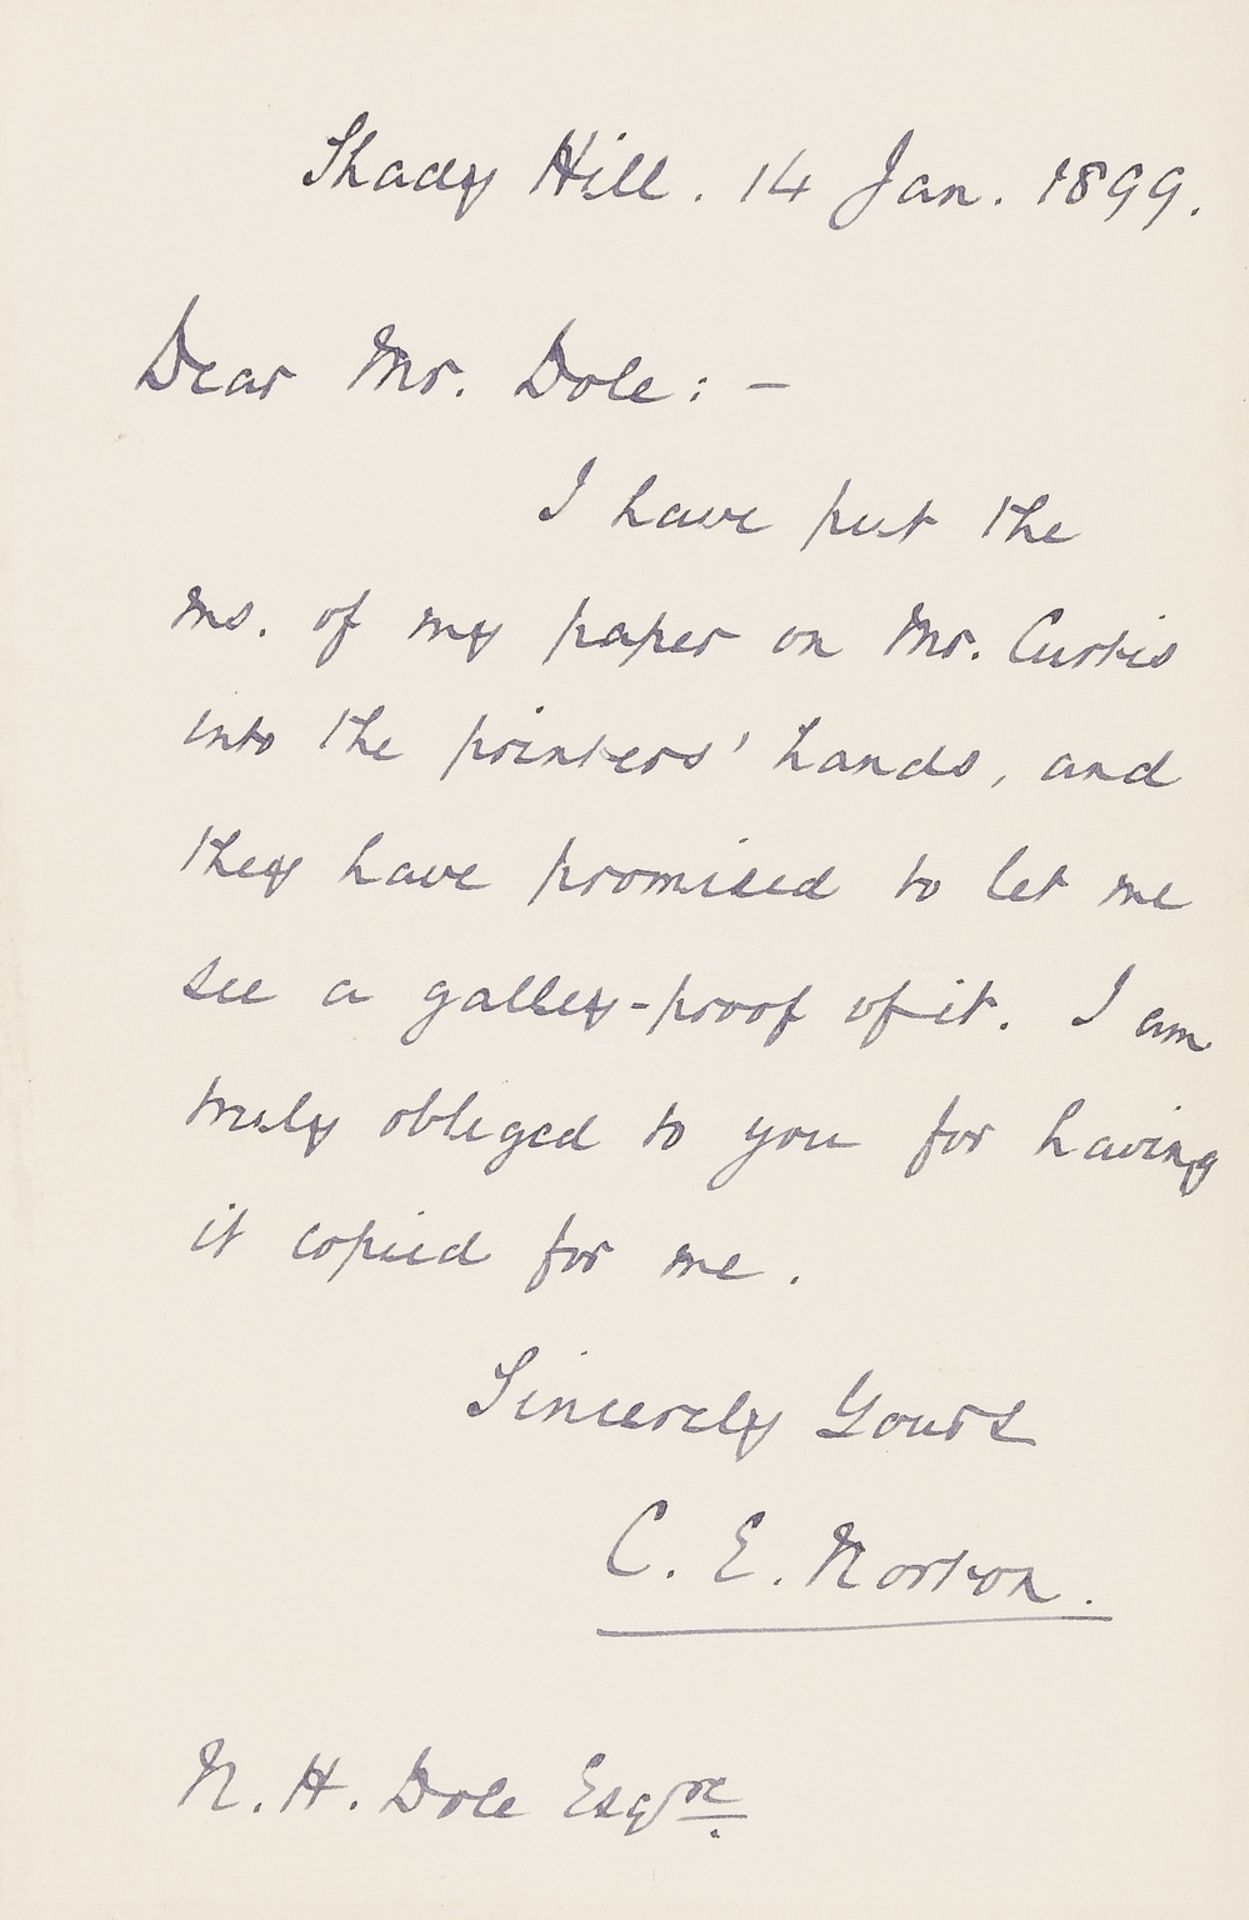 Shady Hill. 14 Jan. 1899.
Dear Mr. Dole: —
I have put the
ms. of my paper on Mr. Curtis
into the printers' hands, and
they have promised to let me
see a galley-proof of it. I am
truly obliged to you for having
it copied for me.
Sincerely Yours
C. E. Norton.
N. H. Dole Esqre.